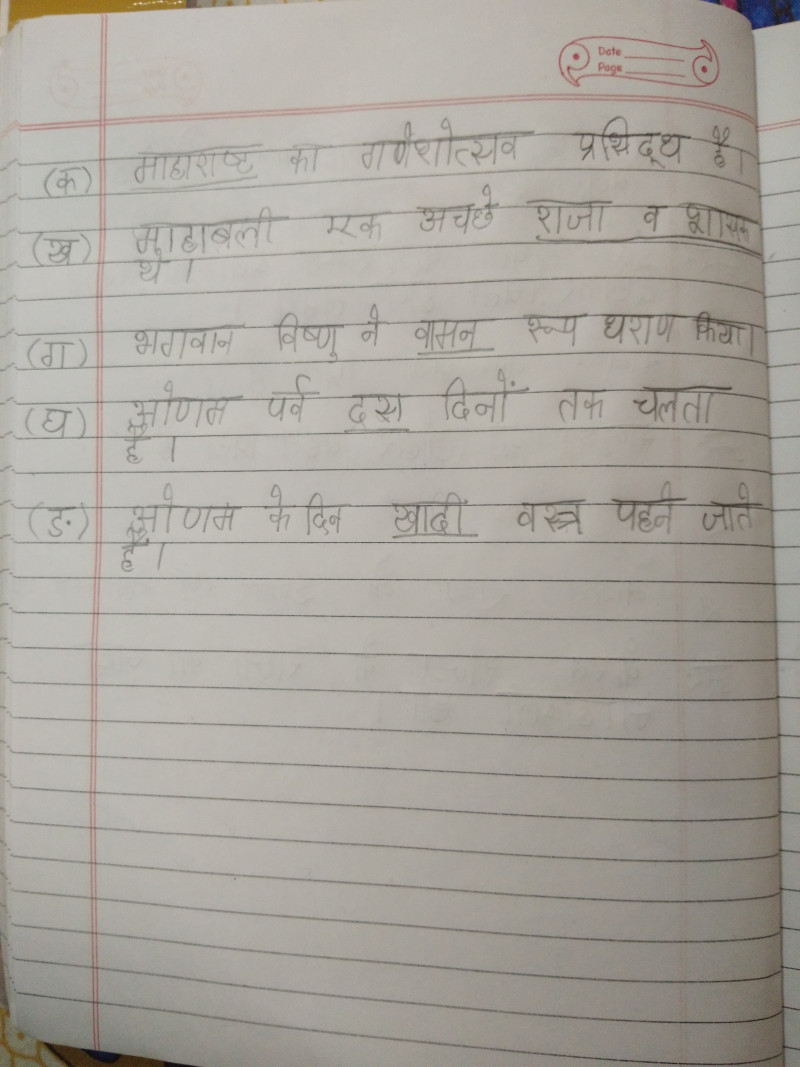 Date
Page
(क) माहाराष्ट का गणेशोत्सव प्रसिद्ध है।
(ख) माहाबली एक अच्छे राजा व शासक
थे।
(ग) भगवान विष्णु ने वामन रूप धराण किया।
(घ) ओणम पर्व दस दिनों तक चलता
है।
(ङ) ओणम के दिन खादी वस्त्र पहने जाते
हैं।